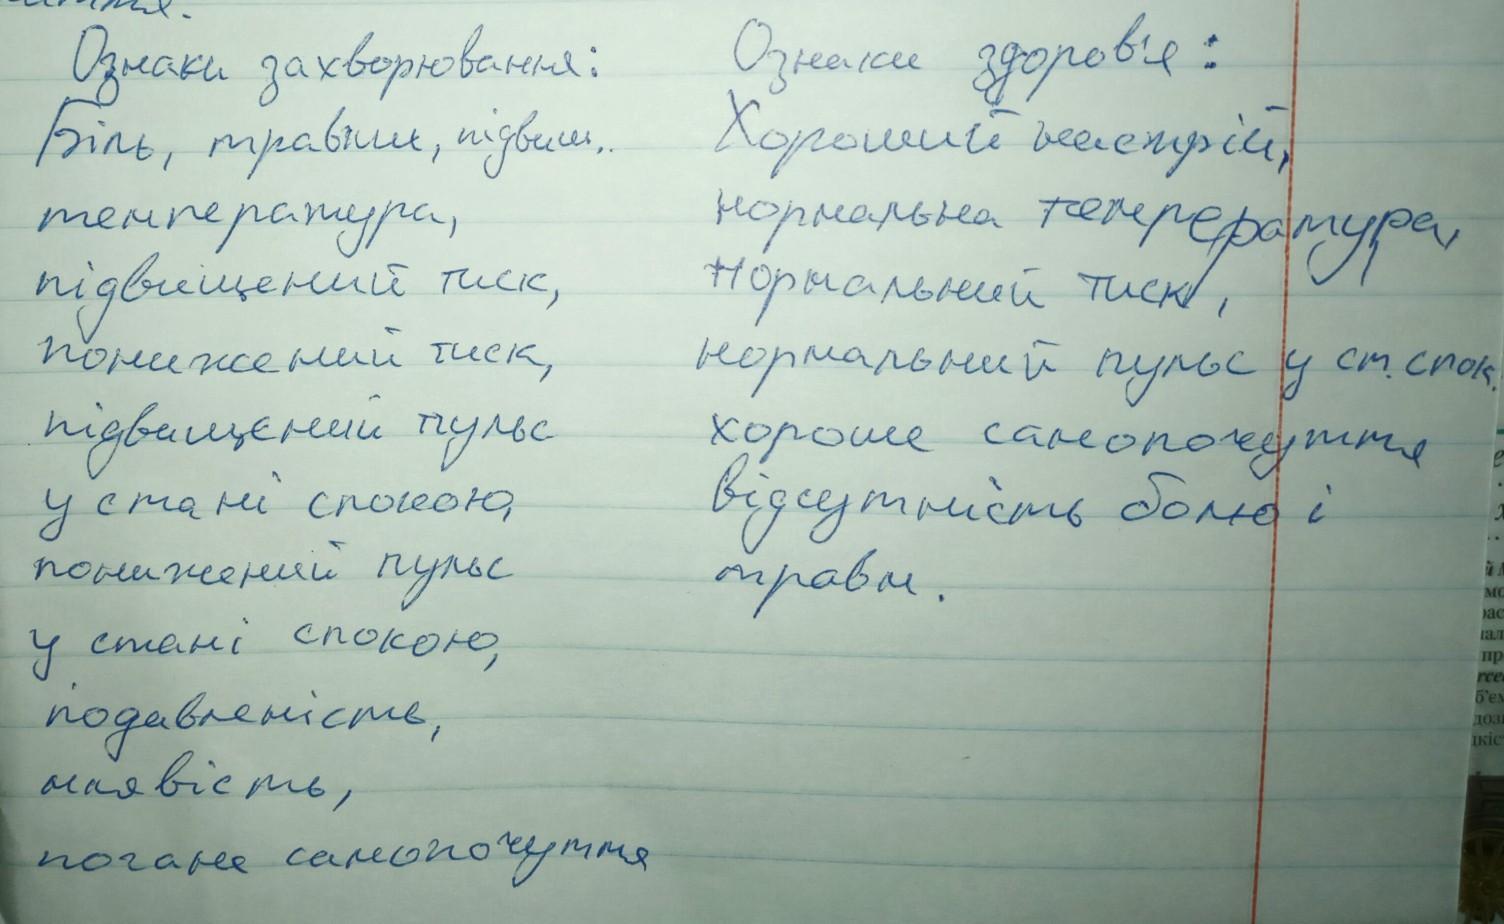 Ознаки захворювання:
Біль, травми, підвищ..
температура,
підвищений тиск,
понижений тиск,
підвищєний пульс
у стані спокою,
понижений пульс
у стані спокою,
подавленість,
млявість,
погане самопочуття
Ознаки здоров'я:
Хороший настрій,
нормальна температура,
Нормальний тиск,
нормальний пульс у ст. спок.
хороше самопочуття
відсутність болю і
травм.